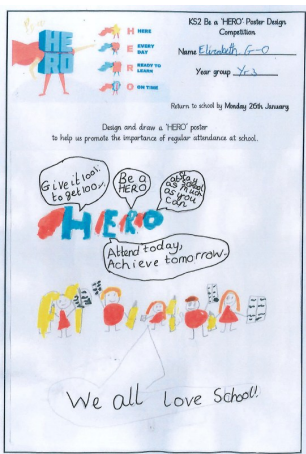 KS2 Be a 'HERO' Poster Design
Competition
HE
RO
H HERE
E EVERY
DAY
R READY TO
LEARN
O ON TIME
Name Elizabeth G-O
Year group Yr3
Return to school by Monday 26th January
Design and draw a 'HERO' poster
to help us promote the importance of regular attendance at school.
Give it 100%
to get 100%
Be a
HERO
Stay
at school
as much
as you
can
HERO
Attend today,
Achieve tomorrow.
We all love School!